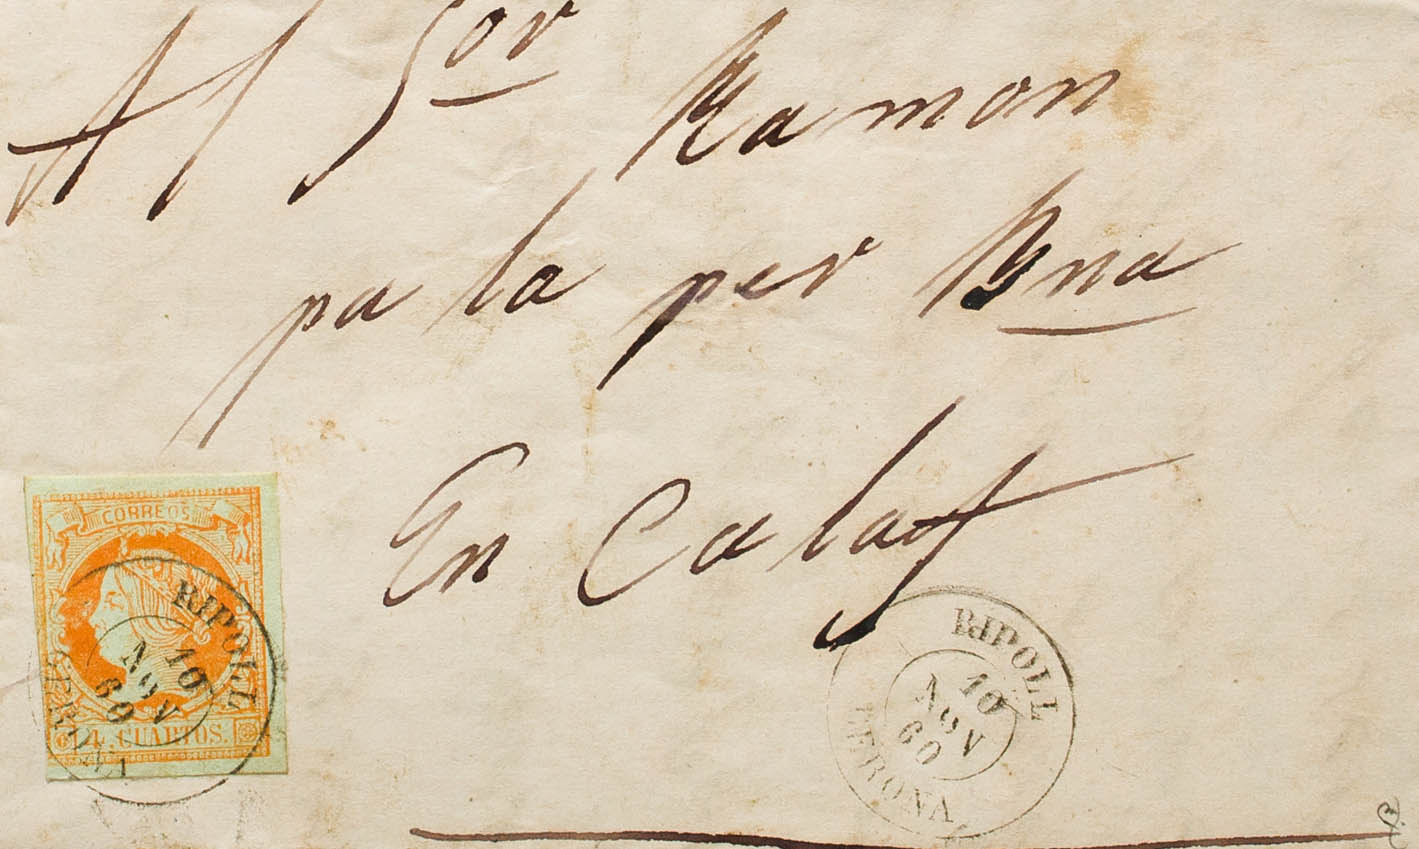 Al Sor Ramon
pala per Bna
En Calaf
CORREOS
4 CUARTOS.
RIPOLL
10
NOV
60
GERONA
RIPOLL
10
NOV
60
GERONA